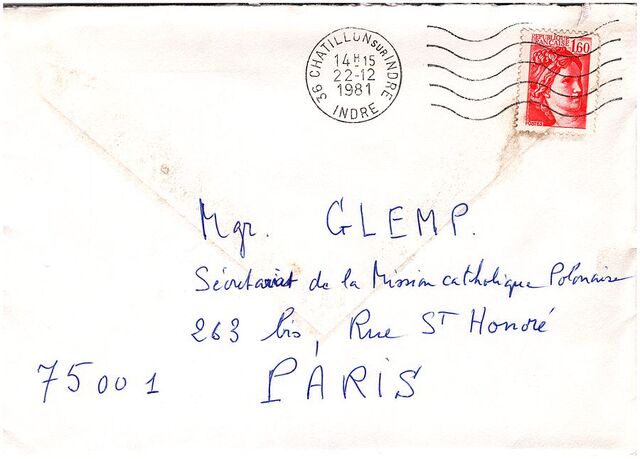 36 CHATILLON SUR INDRE
14H15
22-12
1981
INDRE
REPUBLIQUE
FRANCAISE
1,60
POSTES
Mgr. GLEMP.
Sécretariat de la Mission catholique Polonaise
263 bis, Rue ST Honoré
75001 PARIS